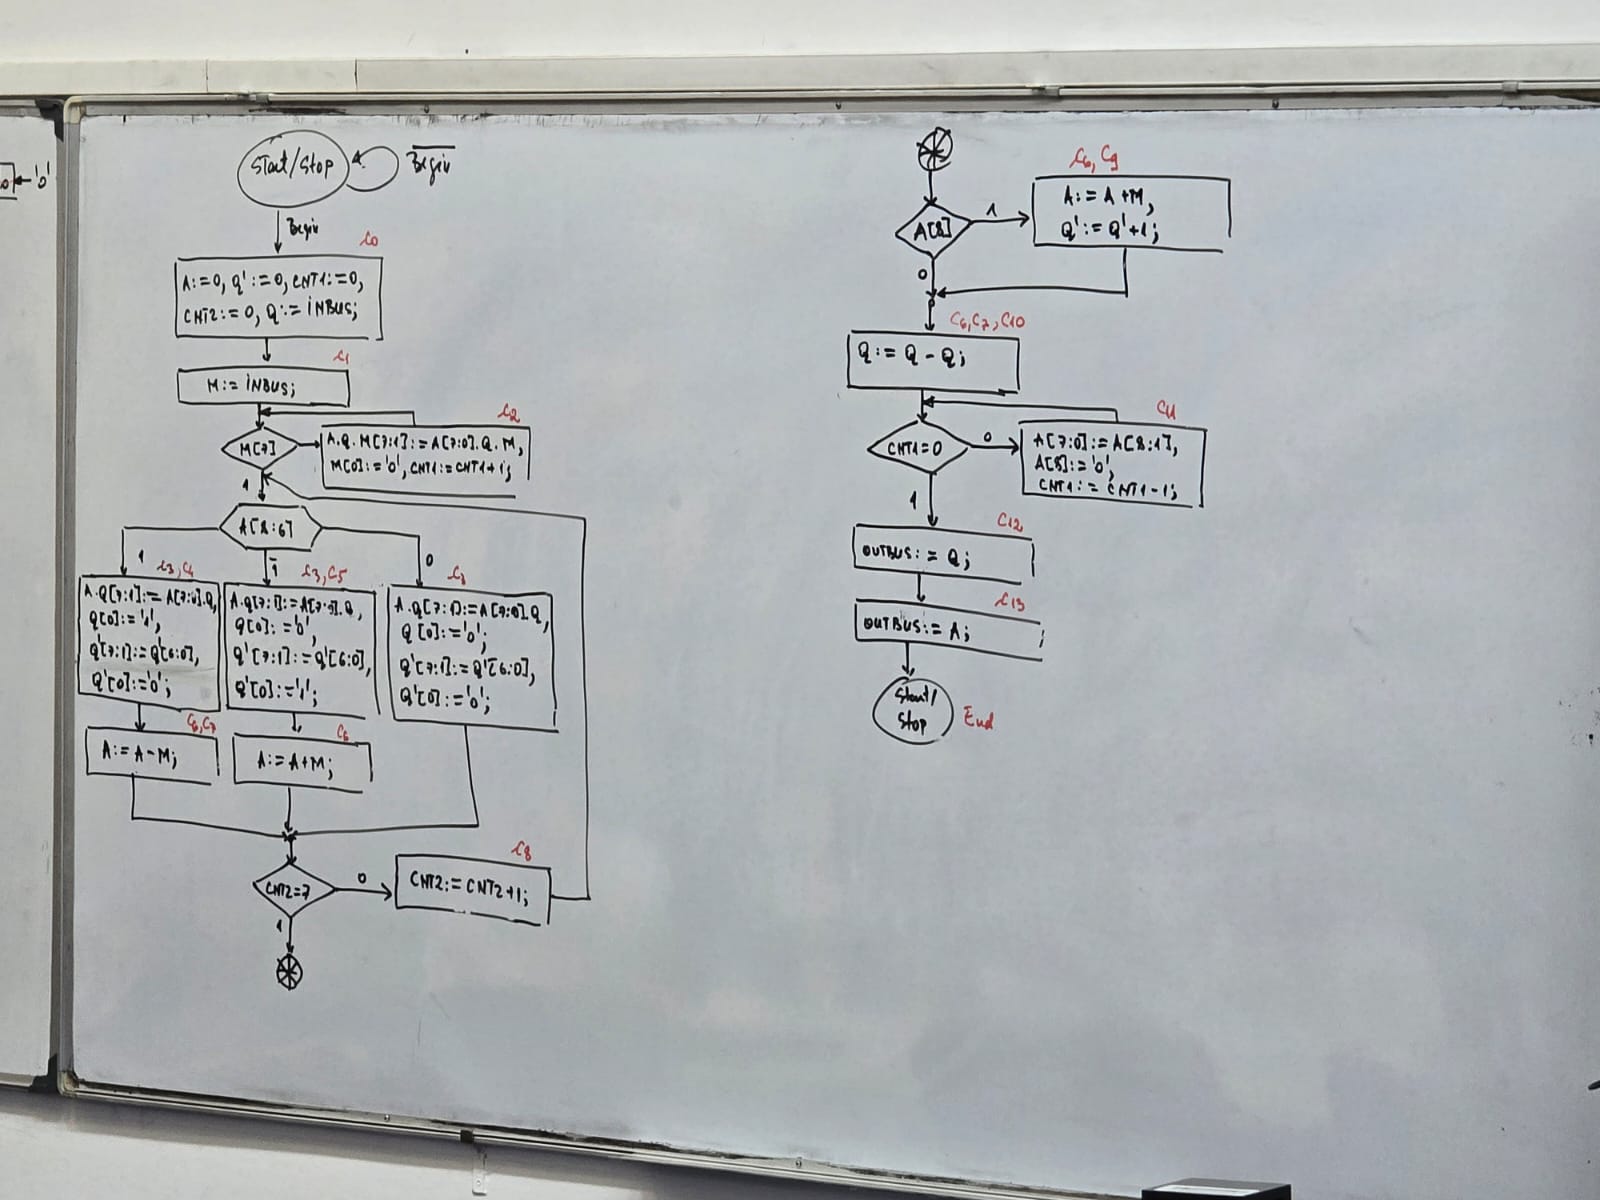 '0'
Start/Stop
Begin
Begin
C0
A:=0, Q':=0, CNT1:=0,
CNT2:=0, Q:=INBUS;
C1
M:= INBUS;
C2
M[7]
A.Q.M[7:1]:=A[7:0].Q.M,
M[0]:='0', CNT1:=CNT1+1;
1
A[8:6]
1
C3, C4
A.Q[7:1]:=A[7:0].Q,
Q[0]:='1',
Q'[7:1]:=Q'[6:0],
Q'[0]:='0';
C6,C7
A:=A-M;
1̄
C3, C5
A.Q[7:1]:=A[7:0].Q,
Q[0]:='0',
Q'[7:1]:=Q'[6:0],
Q'[0]:='1';
C6
A:=A+M;
0
C3
A.Q[7:1]:=A[7:0].Q,
Q[0]:='0';
Q'[7:1]:=Q'[6:0],
Q'[0]:='0';
CNT2=7
0
C8
CNT2:=CNT2+1;
1
A[8]
1
C6, C9
A:=A+M,
Q':=Q'+1;
0
C6,C7,C10
Q:=Q-Q;
CNT1=0
0
C11
A[7:0]:=A[8:1],
A[8]:='0',
CNT1:=CNT1-1;
1
C12
OUTBUS:=Q;
C13
OUTBUS:=A;
Start/
Stop
End